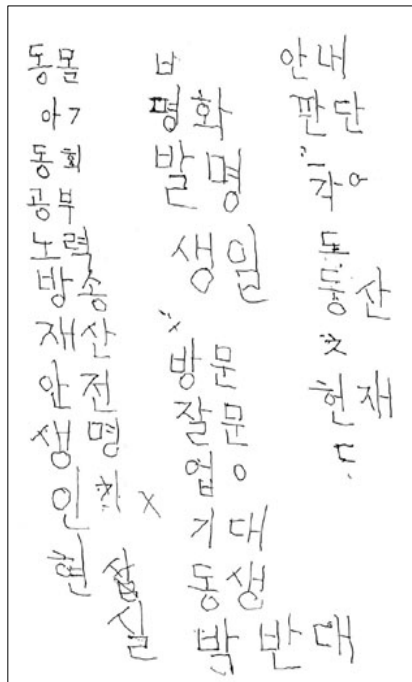 동물
아기
동회
공부
노력
방송
재산
안전
생명
인
현
실
ㅂ
명화
발명
생일
방문
잘문
업ㅇ
기대
동생
박 반대
안내
판단
각ㅇ
도
동산
헌재
ㄷ